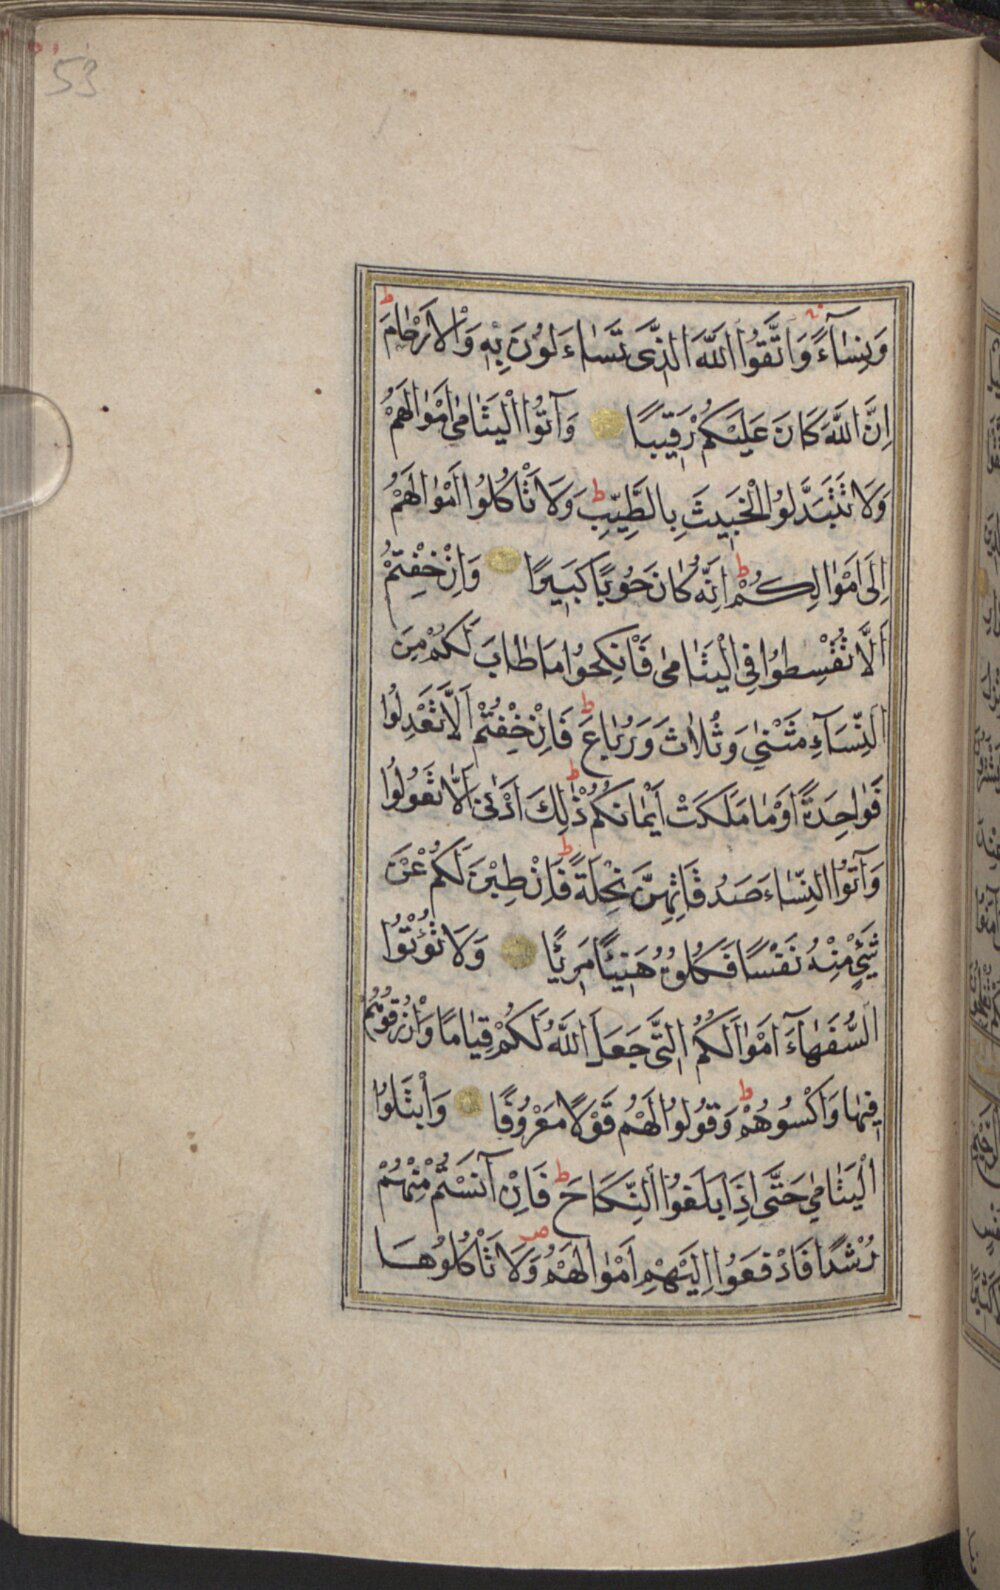 53
وَنِسَآءً وَاتَّقُوا اللّٰهَ الَّذِى تَسَاءَلُونَ بِهِ وَالْاَرْحَامَ
اِنَّ اللّٰهَ كَانَ عَلَيْكُمْ رَقِيبًا وَآتُوا الْيَتَامٰى اَمْوَالَهُمْ
وَلَا تَتَبَدَّلُوا الْخَبِيثَ بِالطَّيِّبِ وَلَا تَأْكُلُوا اَمْوَالَهُمْ
اِلٰى اَمْوَالِكُمْ اِنَّهُ كَانَ حُوبًا كَبِيرًا وَاِنْ خِفْتُمْ
اَلَّا تُقْسِطُوا فِى الْيَتَامٰى فَانْكِحُوا مَا طَابَ لَكُمْ مِنَ
النِّسَآءِ مَثْنٰى وَثُلَاثَ وَرُبَاعَ فَاِنْ خِفْتُمْ اَلَّا تَعْدِلُوا
فَوَاحِدَةً اَوْ مَا مَلَكَتْ اَيْمَانُكُمْ ذٰلِكَ اَدْنٰى اَلَّا تَعُولُوا
وَآتُوا النِّسَاءَ صَدُقَاتِهِنَّ نِحْلَةً فَاِنْ طِبْنَ لَكُمْ عَنْ
شَيْءٍ مِنْهُ نَفْسًا فَكُلُوهُ هَنِيئًا مَرِيئًا وَلَا تُؤْتُوا
السُّفَهَآءَ اَمْوَالَكُمُ الَّتِى جَعَلَ اللّٰهُ لَكُمْ قِيَامًا وَارْزُقُوهُمْ
فِيهَا وَاكْسُوهُمْ وَقُولُوا لَهُمْ قَوْلًا مَعْرُوفًا وَابْتَلُوا
الْيَتَامٰى حَتّٰى اِذَا بَلَغُوا النِّكَاحَ فَاِنْ آنَسْتُمْ مِنْهُمْ
رُشْدًا فَادْفَعُوا اِلَيْهِمْ اَمْوَالَهُمْ وَلَا تَأْكُلُوهَا